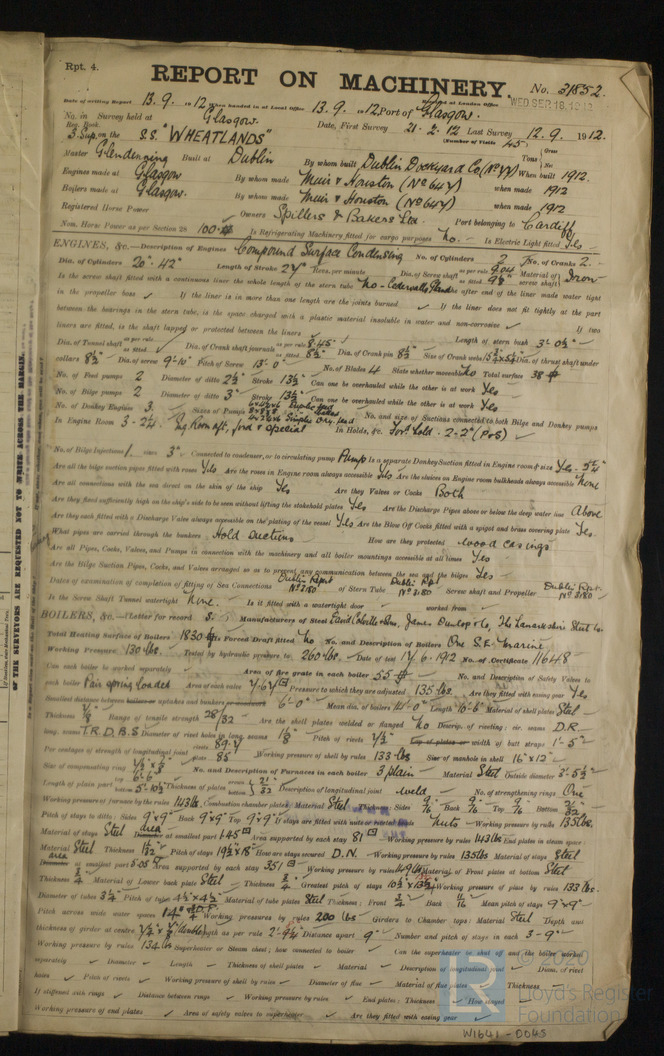 Rpt. 4.
REPORT ON MACHINERY.
No. 31852.
Date of writing Report 13.9. 1912 When handed in at Local Office 13.9. 1912 Port of Glasgow.
WED SEP 18 1912
No. in Reg. Book. Survey held at Glasgow. Date, First Survey 21-2-12 Last Survey 12.9. 1912.
(Number of Visits 45
on the S.S. "WHEATLANDS"
Tons Gross Net
Master Glendenning Built at Dublin By whom built Dublin Dockyard Co When built 1912.
Engines made at Glasgow By whom made Muir & Houston (No 647) when made 1912
Boilers made at Glasgow. By whom made Muir & Houston (No 647) when made 1912
Registered Horse Power Owners Spillers & Bakers Ltd Port belonging to Cardiff
Nom. Horse Power as per Section 28 100 Is Refrigerating Machinery fitted for cargo purposes No. Is Electric Light fitted Yes
ENGINES, &c.—Description of Engines Compound Surface Condensing No. of Cylinders 2 No. of Cranks 2.
Dia. of Cylinders 20"-42" Length of Stroke 27" Revs. per minute Dia. of Screw shaft as per rule 9.04 as fitted Material of screw shaft Iron
Is the screw shaft fitted with a continuous liner the whole length of the stern tube No - Is the after end of the liner made water tight
in the propeller boss ✓ If the liner is in more than one length are the joints burned If the liner does not fit tightly at the part
between the bearings in the stern tube, is the space charged with a plastic material insoluble in water and non-corrosive ✓ If two
liners are fitted, is the shaft lapped or protected between the liners ✓ Length of stern bush 3'-0½"
Dia. of Tunnel shaft as per rule as fitted Dia. of Crank shaft journals as per rule 8.45 as fitted 8½" Dia. of Crank pin 8½" Size of Crank webs Dia. of thrust shaft under
collars 8½" Dia. of screw 9'-10" Pitch of Screw 13'-0" No. of Blades 4 State whether moveable No Total surface 38
No. of Feed pumps 2 Diameter of ditto 2½" Stroke 13½" Can one be overhauled while the other is at work Yes
No. of Bilge pumps 2 Diameter of ditto 3" Stroke 13½" Can one be overhauled while the other is at work Yes
No. of Donkey Engines 3. Sizes of Pumps No. and size of Suctions connected to both Bilge and Donkey pumps
In Engine Room 3-2¼" In Holds, &c. Ford Hold. 2-2" (P&S) ✓
No. of Bilge Injections 1 sizes 3" Connected to condenser, or to circulating pump Pump Is a separate Donkey Suction fitted in Engine room & size Yes.
Are all the bilge suction pipes fitted with roses Yes Are the roses in Engine room always accessible Yes Are the sluices on Engine room bulkheads always accessible None
Are all connections with the sea direct on the skin of the ship Yes Are they Valves or Cocks Both
Are they fixed sufficiently high on the ship's side to be seen without lifting the stokehold plates Yes Are the Discharge Pipes above or below the deep water line Above
Are they each fitted with a Discharge Valve always accessible on the plating of the vessel Yes Are the Blow Off Cocks fitted with a spigot and brass covering plate Yes.
What pipes are carried through the bunkers Hold Suctions How are they protected Wood casings
Are all Pipes, Cocks, Valves, and Pumps in connection with the machinery and all boiler mountings accessible at all times Yes
Are the Bilge Suction Pipes, Cocks, and Valves arranged so as to prevent any communication between the sea and the bilges Yes
Dates of examination of completion of fitting of Sea Connections Dublin Rpt No 2180 of Stern Tube Dublin Rpt No 2180 Screw shaft and Propeller Dublin Rpt. No 2180
Is the Screw Shaft Tunnel watertight None. Is it fitted with a watertight door ✓ worked from ✓
BOILERS, &c.—(Letter for record S.) Manufacturers of Steel David Colville & Sons, James Dunlop & Co, The Lanarkshire Steel Co.
Total Heating Surface of Boilers 1830 Is Forced Draft fitted No No. and Description of Boilers One S.E. Marine
Working Pressure 130 lbs. Tested by hydraulic pressure to 260 lbs. Date of test 17/6/1912 No. of Certificate 11648
Can each boiler be worked separately ✓ Area of fire grate in each boiler 55 No. and Description of Safety Valves to
each boiler Pair spring loaded Area of each valve 7.67 Pressure to which they are adjusted 135 lbs. Are they fitted with easing gear Yes
Smallest distance between boilers or uptakes and bunkers or woodwork 6'-0" Mean dia. of boilers 14'-0" Length 10'-6" Material of shell plates Steel
Thickness Range of tensile strength 28/32 Are the shell plates welded or flanged No Descrip. of riveting: cir. seams D.R.
long. seams T.R.D.B.S Diameter of rivet holes in long. seams 1⅛ Pitch of rivets Lap of plates or width of butt straps 1'-5"
Per centages of strength of longitudinal joint rivets 89.7 plate 85 Working pressure of shell by rules 133 lbs Size of manhole in shell 16"x12"
Size of compensating ring No. and Description of Furnaces in each boiler 3 plain Material Steel Outside diameter 3'-5½"
Length of plain part top 6'-6" bottom 5'-10½" Thickness of plates crown 21/32 bottom Description of longitudinal joint weld No. of strengthening rings One
Working pressure of furnace by the rules 143 lbs. Combustion chamber plates: Material Steel Thickness: Sides 9/16 Back 9/16 Top 9/16 Bottom
Pitch of stays to ditto: Sides 9"x9" Back 9"x9" Top 9"x9" If stays are fitted with nuts or riveted heads Nuts Working pressure by rules 135 lbs.
Material of stays Steel Area at smallest part 1.45 Area supported by each stay 81 Working pressure by rules 143 lbs End plates in steam space:
Material Steel Thickness Pitch of stays 19½"x18" How are stays secured D.N. Working pressure by rules 135 lbs Material of stays Steel
Area at smallest part 5.05 Area supported by each stay 351 Working pressure by rules 149 lbs Material of Front plates at bottom Steel
Thickness ¾ Material of Lower back plate Steel Thickness ¾ Greatest pitch of stays Working pressure of plate by rules 133 lbs.
Diameter of tubes 3¼" Pitch of tubes 4½"x4½" Material of tube plates Steel Thickness: Front ¾ Back 11/16 Mean pitch of stays 9"x9"
Pitch across wide water spaces 14" Working pressures by rules 200 lbs Girders to Chamber tops: Material Steel Depth and
thickness of girder at centre Length as per rule Distance apart 9" Number and pitch of stays in each 3-9"
Working pressure by rules 134 lbs Superheater or Steam chest; how connected to boiler ✓ Can the superheater be shut off and the boiler worked
separately ✓ Diameter ✓ Length ✓ Thickness of shell plates ✓ Material ✓ Description of longitudinal joint ✓ Diam. of rivet
holes ✓ Pitch of rivets ✓ Working pressure of shell by rules ✓ Diameter of flue ✓ Material of flue plates Thickness
If stiffened with rings ✓ Distance between rings ✓ Working pressure by rules ✓ End plates: Thickness How stayed
Working pressure of end plates ✓ Area of safety valves to superheater ✓ Are they fitted with easing gear ✓
OF THE SURVEYORS ARE REQUESTED NOT TO WRITE ACROSS THE MARGIN.
© 2020
LR
Lloyd's Register
Foundation
W1641-0045